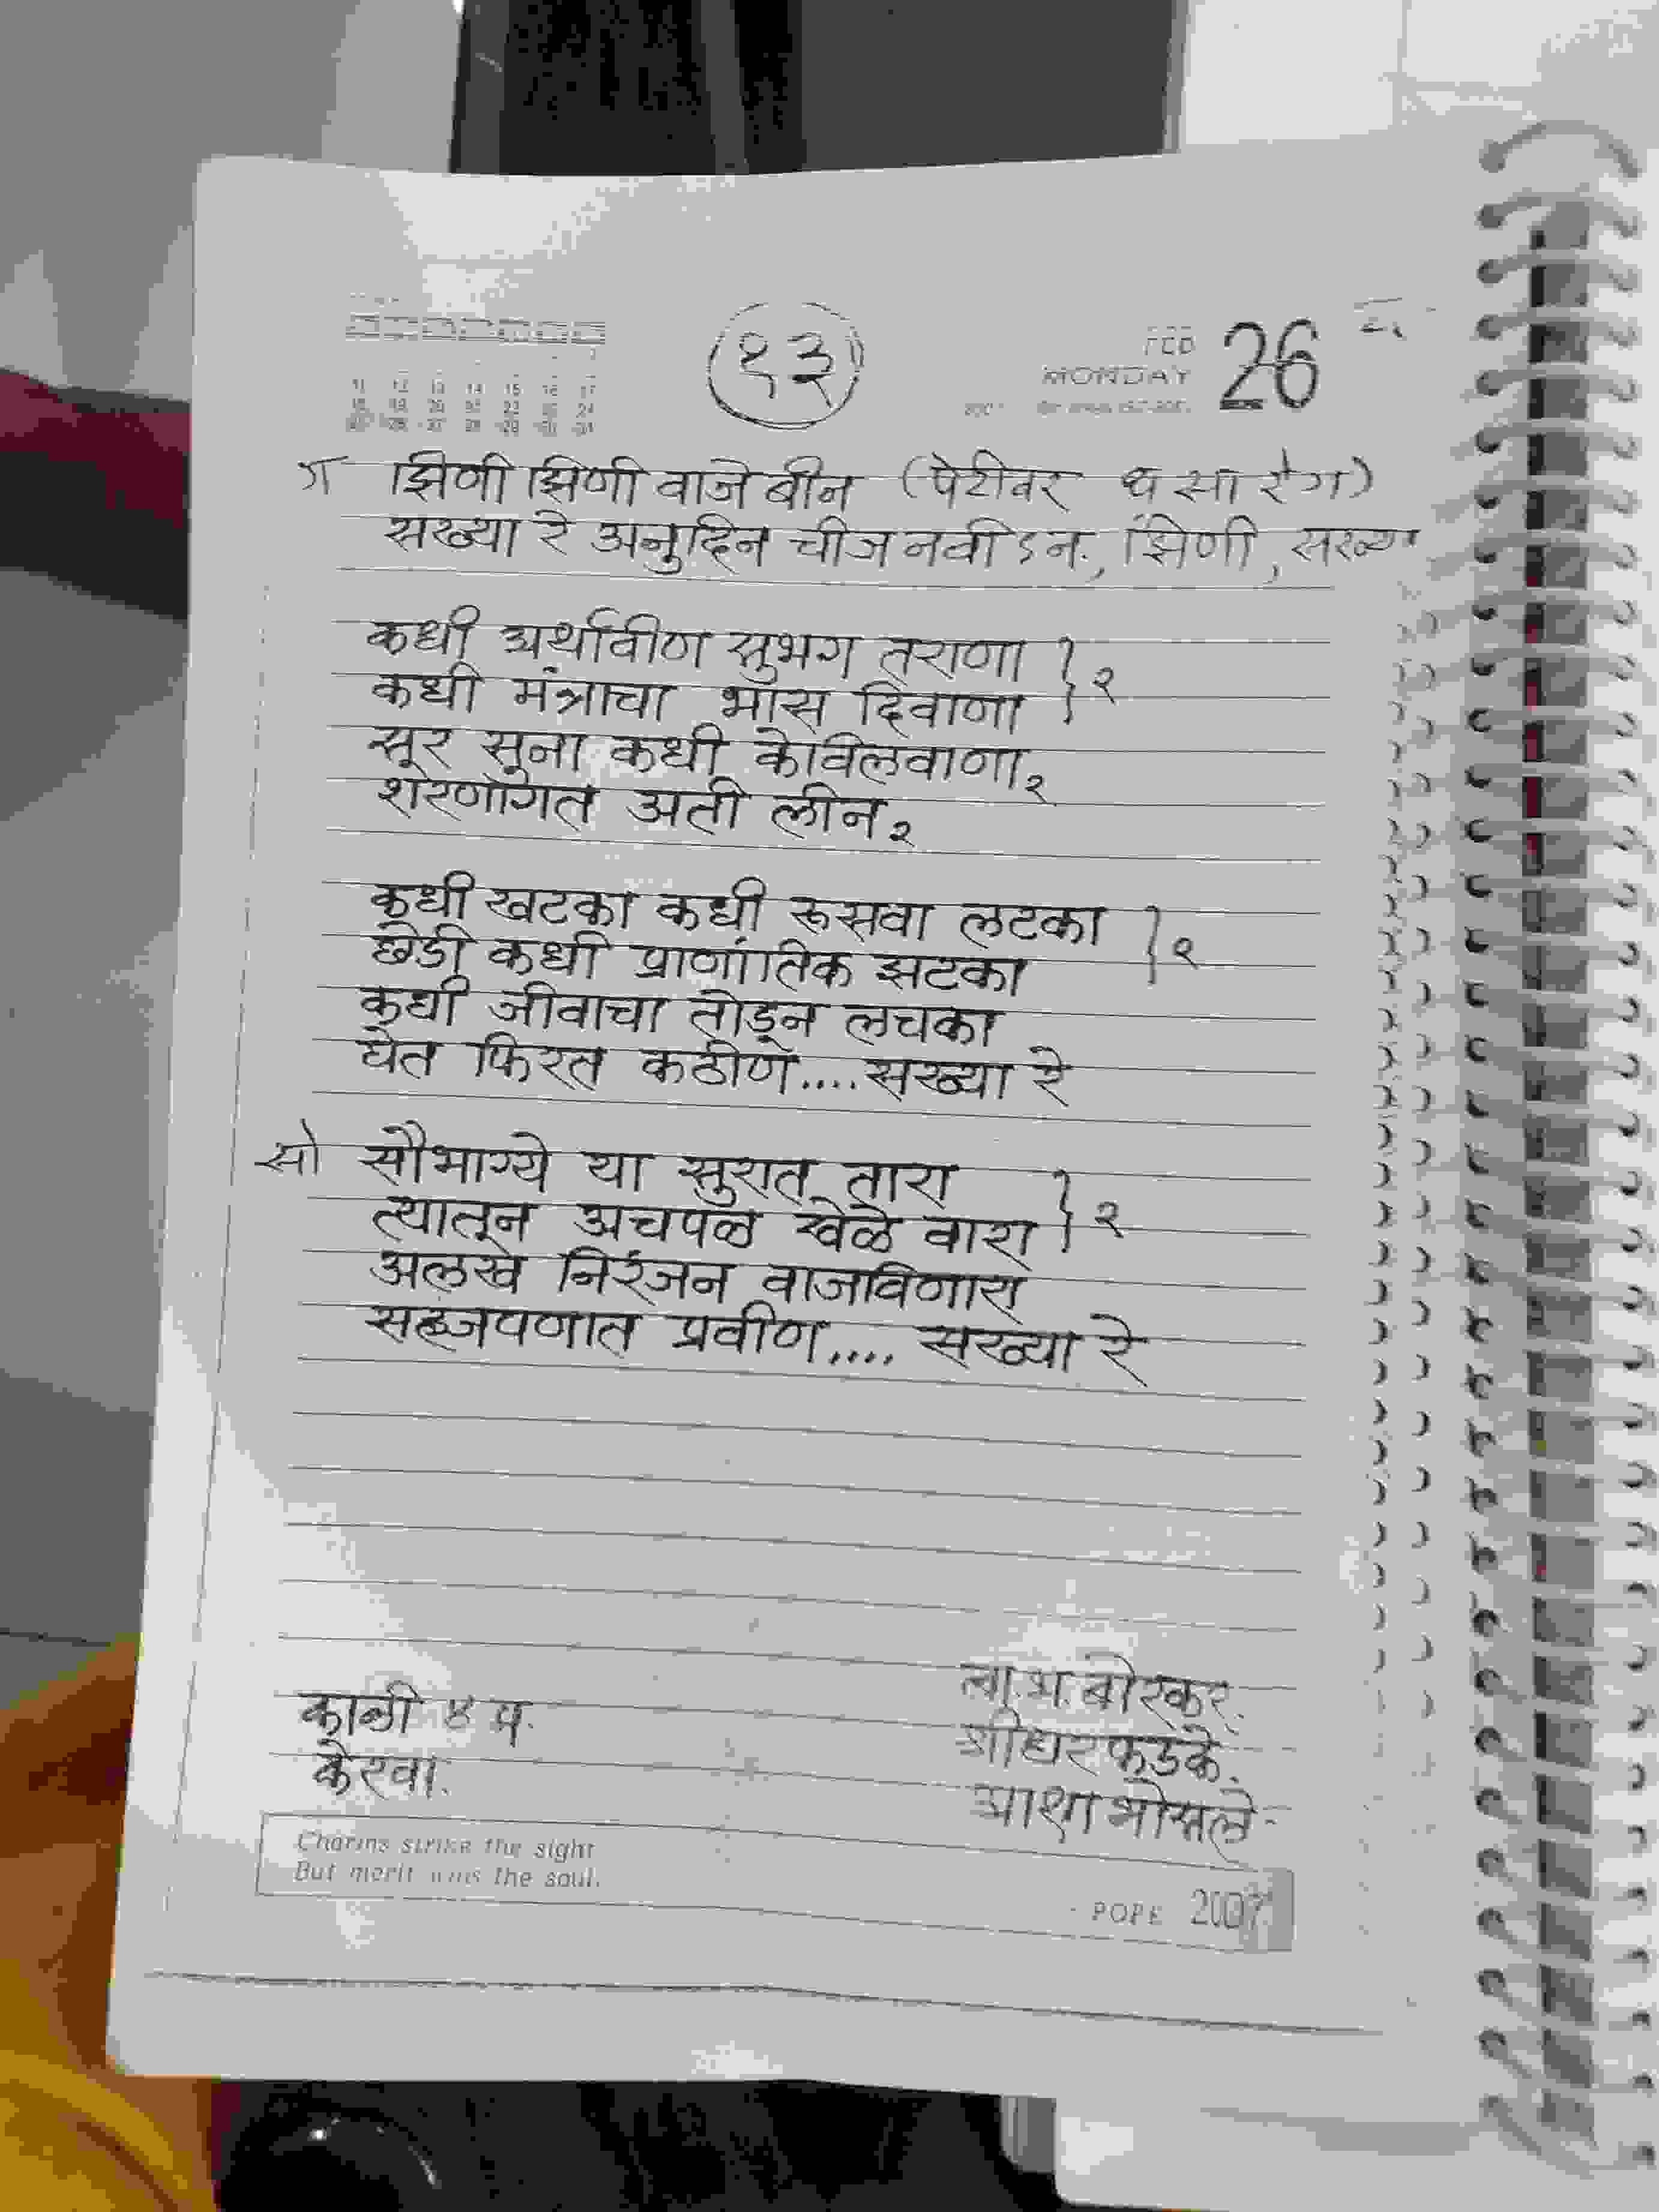 १३
FEB 26
MONDAY
11 12 13 14 15 16 17
ग झिणी झिणी वाजे बीन (पेटीवर ध सा रे ग)
सख्या रे अनुदिन चीज नवीऽन, झिणी, सख्या
कधी अर्थावीण सुभग तराणा } २
कधी मंत्राचा भास दिवाणा
सूर सुना कधी केविलवाणा २
शरणागत अती लीन २
कधी खटका कधी रूसवा लटका } २
छेडी कधी प्राणांतिक झटका
कधी जीवाचा तोडून लचका
घेत फिरत कठीण.... सख्या रे
सो सौभाग्ये या सुरात तारा } २
त्यातून अचपळ खेळे वारा
अलख निरंजन वाजविणारा
सहजपणात प्रवीण.... सख्या रे
बा.भ. बोरकर.
काळी ४ प.
श्रीधर फडके.
केरवा.
आशा भोसले
Charms strike the sight
But merit wins the soul.
- POPE 2007